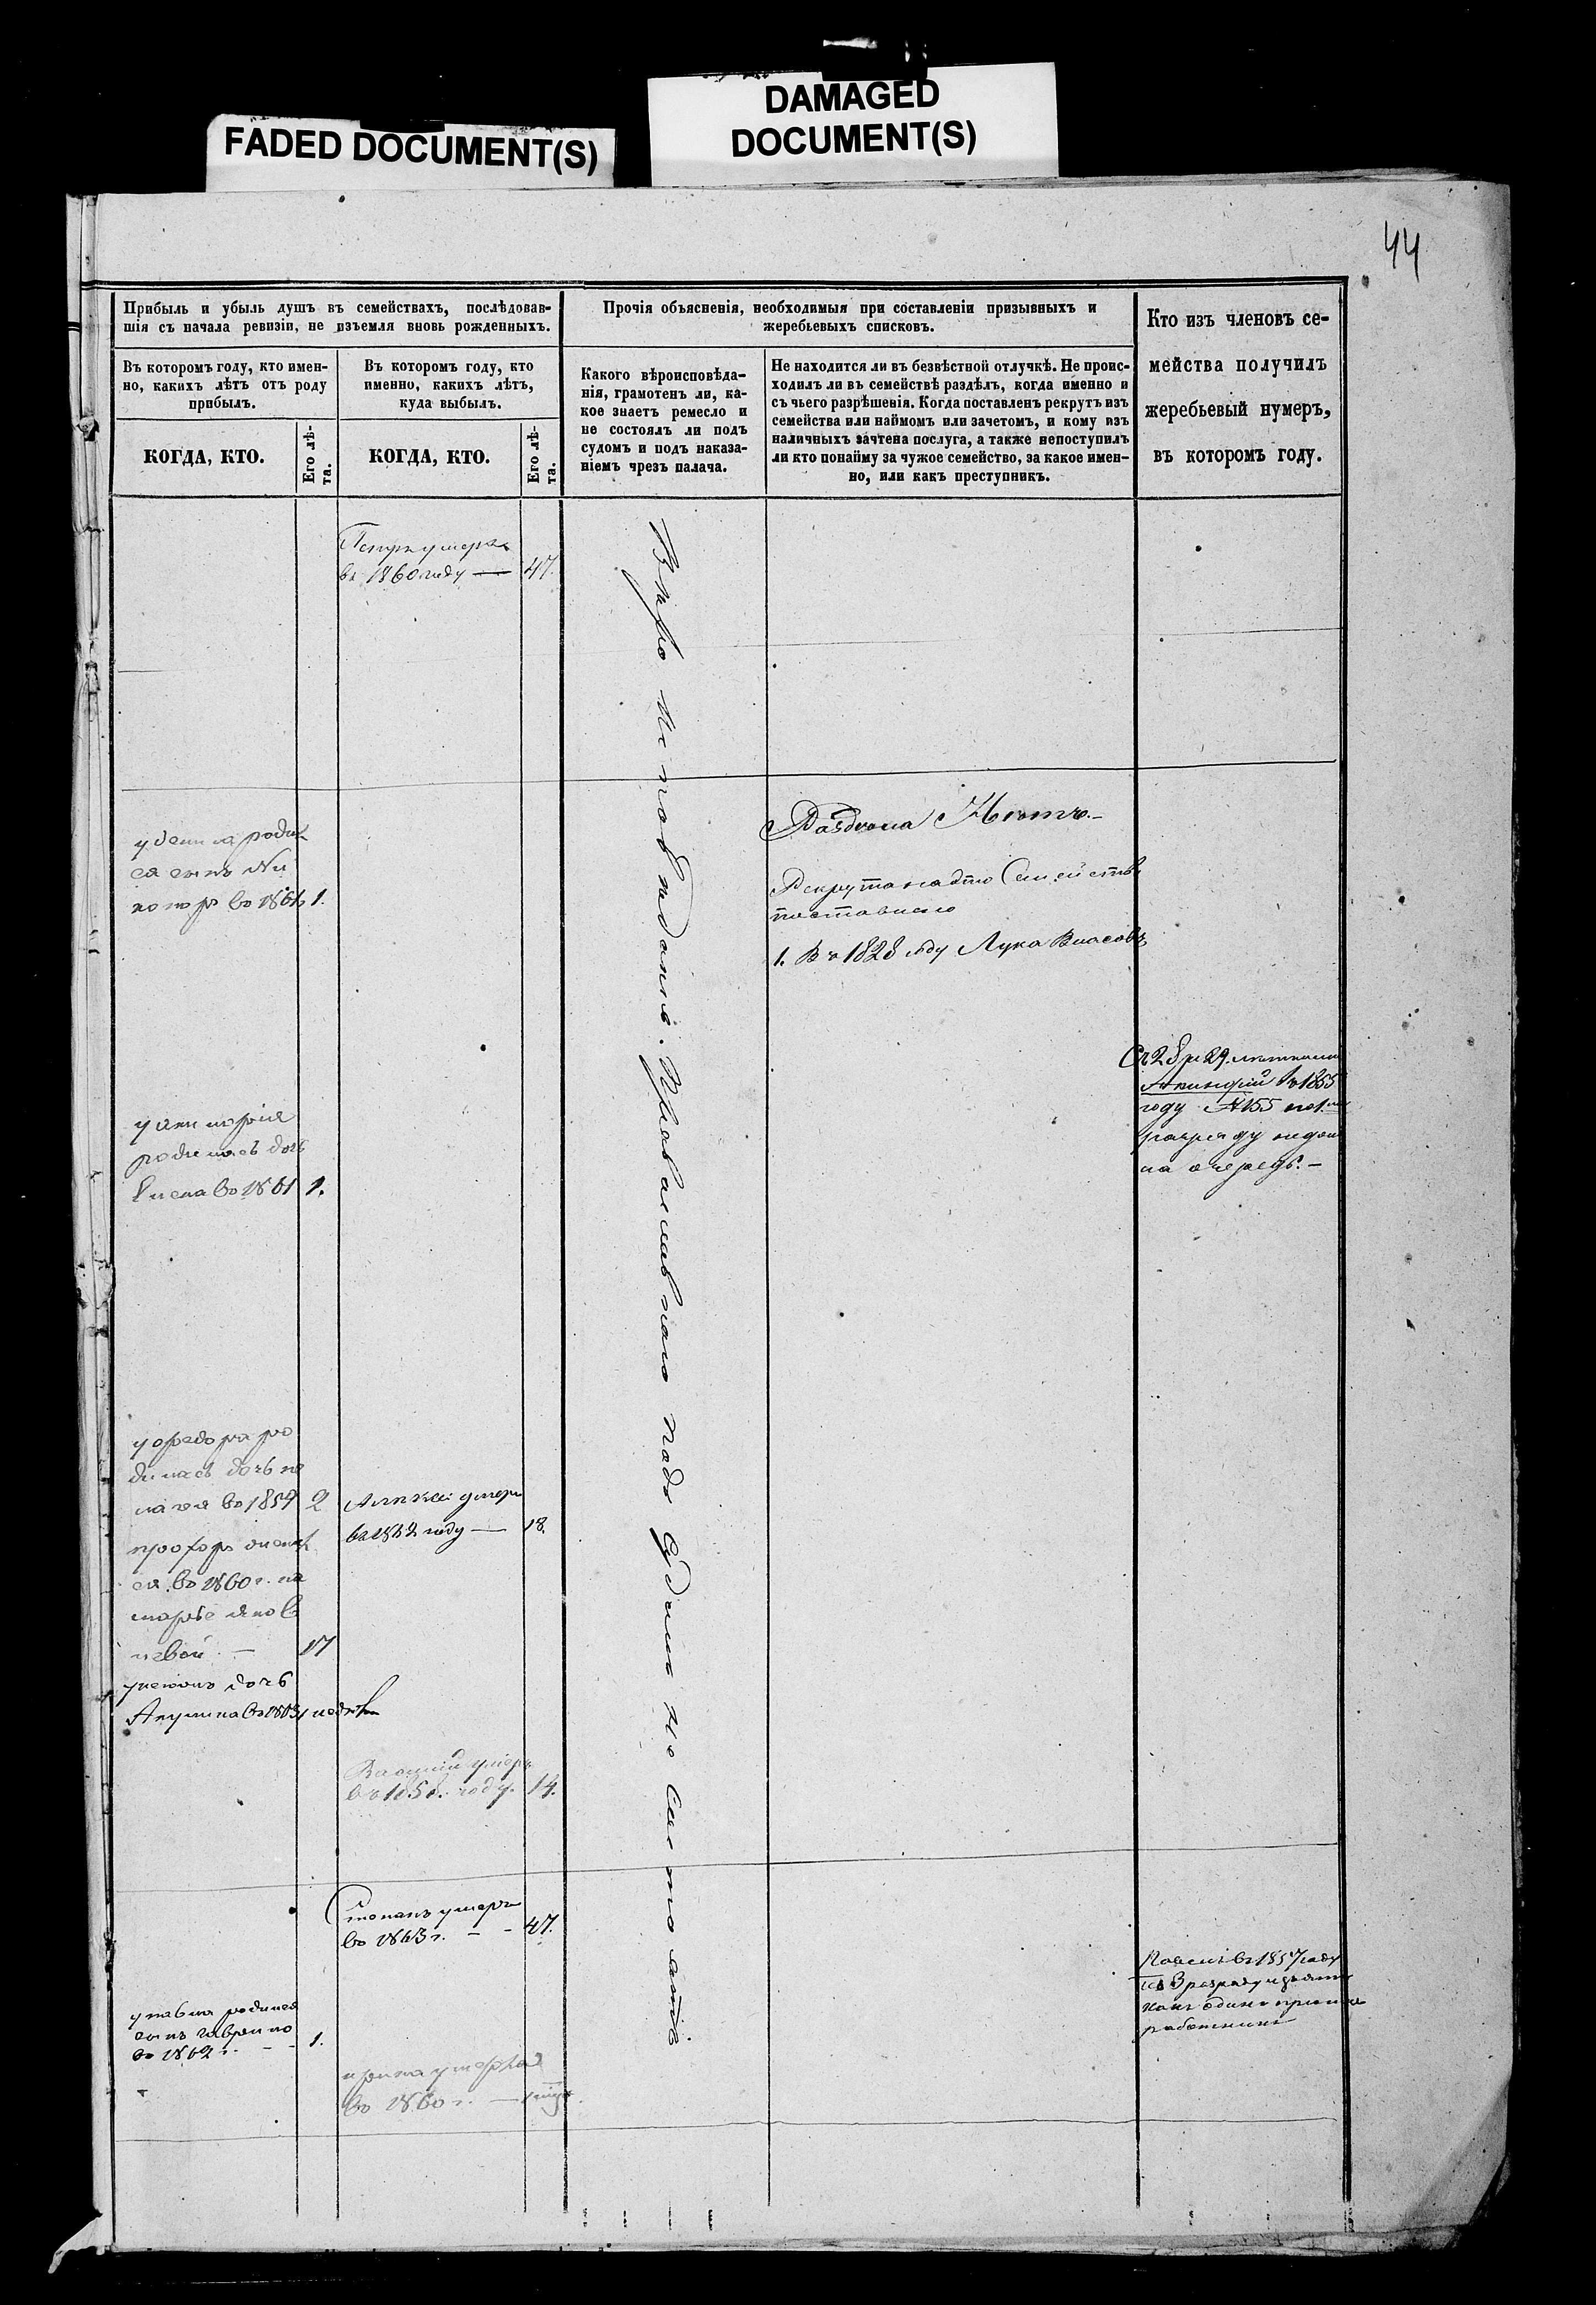 FADED DOCUMENT(S)
DAMAGED
DOCUMENT(S)
44
Прибыль и убыль душъ въ семействахъ, послѣдовав-
шія съ начала ревизіи, не изъемля вновь рожденныхъ.
Въ которомъ году, кто имен-
но, какихъ лѣтъ отъ роду
прибылъ.
КОГДА, КТО.
Его лѣ-
та.
Въ которомъ году, кто
именно, какихъ лѣтъ,
куда выбылъ.
КОГДА, КТО.
Его лѣ-
та.
Прочія объясненія, необходимыя при составленіи призывныхъ и
жеребьевыхъ списковъ.
Какого вѣроисповѣда-
нія, грамотенъ ли, ка-
кое знаетъ ремесло и
не состоялъ ли подъ
судомъ и подъ наказа-
ніемъ чрезъ палача.
Не находится ли въ безвѣстной отлучкѣ. Не проис-
ходилъ ли въ семействѣ раздѣлъ, когда именно и
съ чьего разрѣшенія. Когда поставленъ рекрутъ изъ
семейства или наймомъ или зачетомъ, и кому изъ
наличныхъ зачтена послуга, а также непоступилъ
ли кто понайму за чужое семейство, за какое имен-
но, или какъ преступникъ.
Кто изъ членовъ се-
мейства получилъ
жеребьевый нумеръ,
въ которомъ году.
Петръ умеръ
въ 1860 году — 47.
Вѣро исповѣданія Православнаго подъ судомъ не состоятъ
Раздѣла Нѣтъ.-
Рекрута
поставлено
1. Въ 1828 году Лука Власовъ
родил
ся сынъ Ни
во 1861 1.
родилась дочь
во 1861 1.
Съ 28 и 29
въ 1855
году №155 по 1
разряду
на очередь.-
у Федора ро
дилась дочь пе
лагея во 1859 2
прохоръ
ся во 1860 г. на
марье яковл
невой — 17
дочь
Акулина во 1863
Алексѣй умеръ
въ 1862 году — 18.
умеръ
въ 185 году. 14.
Степанъ умеръ
во 1863 г. - - 47.
у павла родился
сынъ гаврило
во 1862 г. - - 1.
ирина умерла
во 1860 г. —
Павелъ въ 1857 году
по 3 разряду изъятъ
какъ одинъ
работникъ